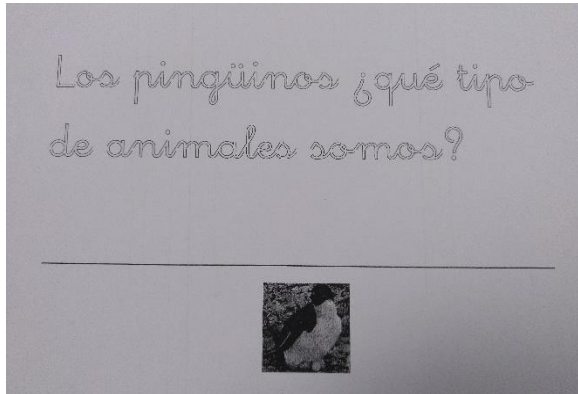 Los pingüinos ¿qué tipo
de animales somos?